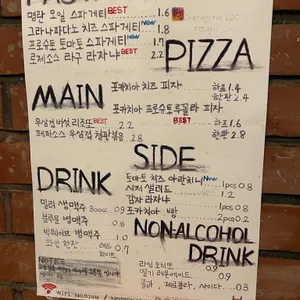 명란 오일 스파게티 BEST 1.6
그라나파다노 치즈 스파게티 New 1.8
프로슈토 토마토 스파게티 New 1.9
로제소스 라구 라자냐 BEST 2.2
PIZZA
포카치아 치즈 피자 하프 1.4
한판 2.4
포카치아 프로슈토루꼴라 피자
BEST 하프 1.6
한판 2.8
MAIN
우삼겹버섯 리조또 BEST 2.2
페퍼소스 우삼겹 철판볶음 2.8
SIDE
토마토 치즈 아란치니 New 1pcs 0.8
시저 샐러드 1.2
감자 라자냐 1pcs 0.8
포카치아 빵 2pcs 0.2
DRINK
밀러 생맥주 0.9
블루문 병맥주 0.1
병맥주 1.0
와인 한잔
NON-ALCOHOL
DRINK
0.9
딸기
콜라, 제로콜라, 사이다 0.3
NOTICE
WIFI